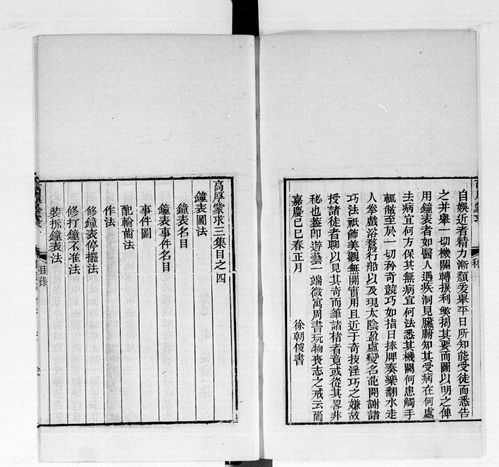 自娛近者精力漸頹爰舉平日所知能受徒而悉告
之并舉一切機關轉捩利敏揭其要而圖以明之俾
用鐘表者如醫人遇疾洞見臟腑知其受病在何處
去病宜何方保其無病宜何法悉其機關何患觸手
輒倦至於一切矜奇競巧如指日捧牌奏樂翻水走
人拳戲浴鶩行船以及現太陰盈虛變名花開謝諸
巧法祇飾美觀無關實用且近于奇技淫巧之嫌故
授諸徒者聊以見其奇而筆諸楮者竟或從其畧非
秘也蓋即遊藝一端微寓周書玩物喪志之戒云爾
嘉慶己巳春正月
徐朝俊書
高厚蒙求三集目之四
鐘表圖法
鐘表名目
鐘表事件名目
事件圖
配輪齒法
作法
修鐘表停擺法
修打鐘不準法
裝拆鐘表法
目錄